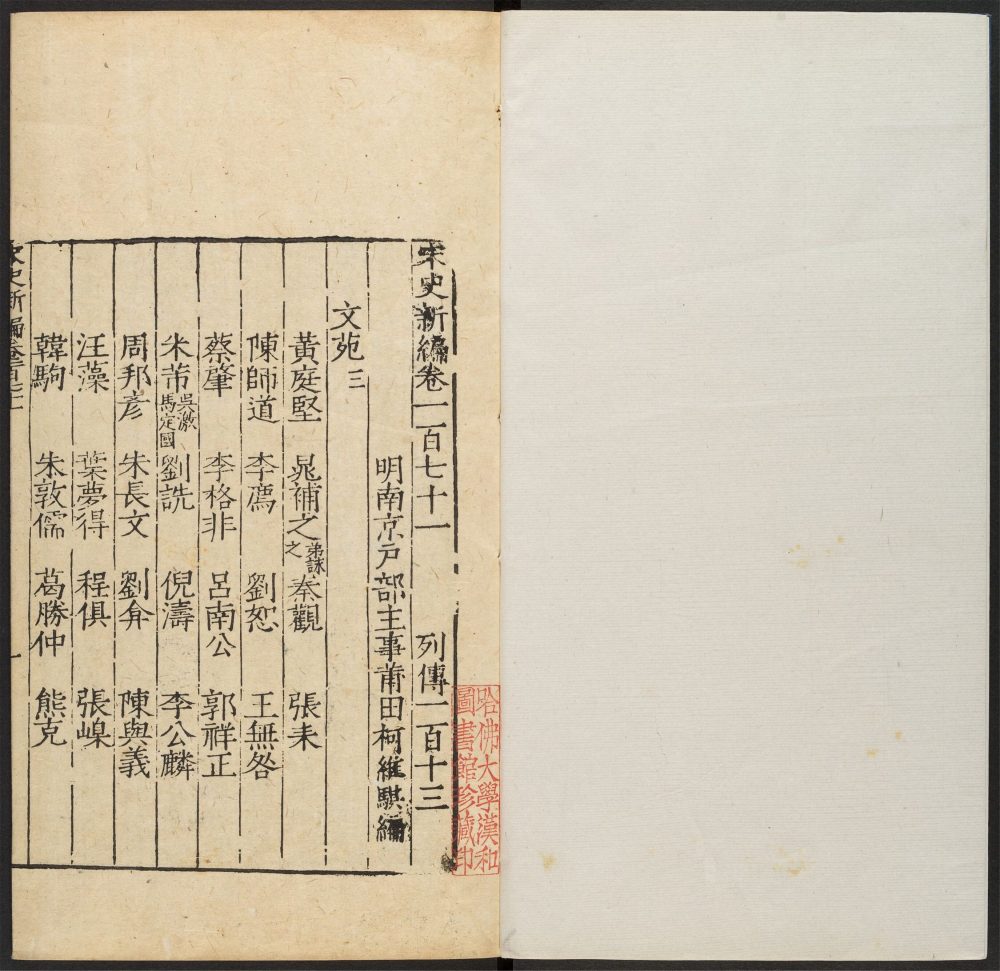 宋史新編卷一百七十一 列傳一百十三
明南京戸部主事莆田柯維騏編
文苑三
黃庭堅 晁補之 弟詠之 秦觀 張耒
陳師道 李廌 劉恕 王無咎
蔡肇 李格非 呂南公 郭祥正
米芾 吳激 馬定國 劉詵 倪濤 李公麟
周邦彥 朱長文 劉弇 陳與義
汪藻 葉夢得 程俱 張嵲
韓駒 朱敦儒 葛勝仲 熊克
宋史新編卷一百七十一 一
哈佛大學漢和
圖書館珍藏印